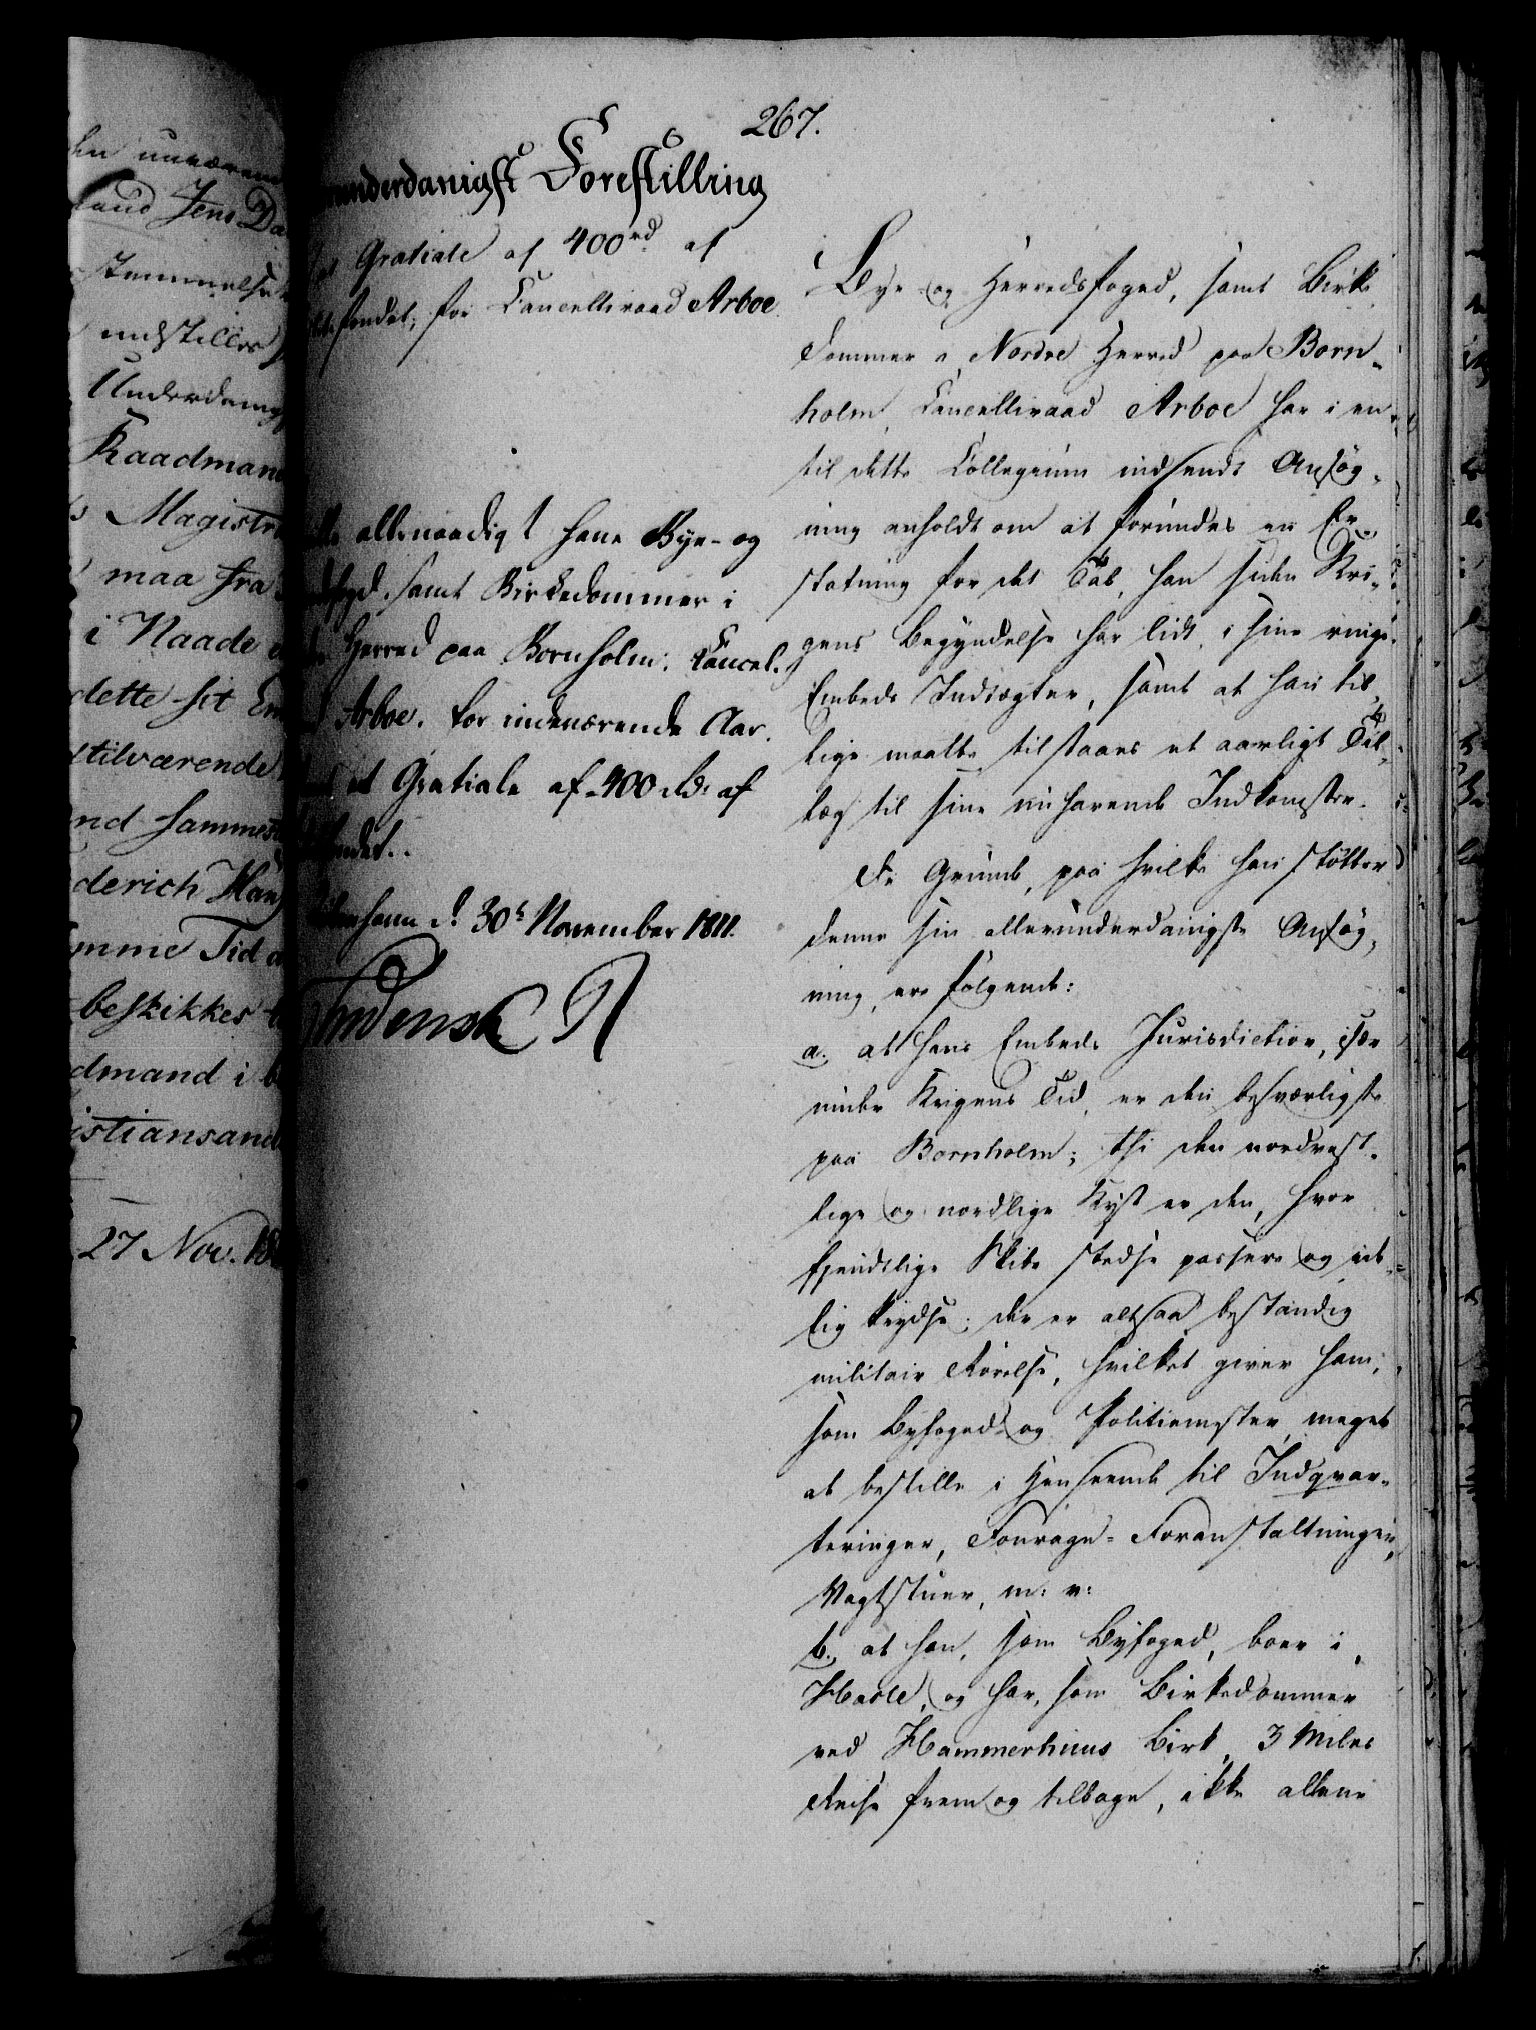 267.
underdanigst Forestilling
et Gratiale af 400 rd. af
fondet, for Cancelliraad Arboe
allernaadigst have Bye- og
foged, samt Birkedommer i
Herred paa Bornholm, Cancel-
Arboe, for indeværende Aar,
et Gratiale af 400 rd: af
fondet.
d. 30t November 1811.
Frederik R
Bye- og Herredsfoged, samt Birke-
dommer i Nordre Herred paa Born-
holm, Cancelliraad Arboe har i en
til dette Collegium indsendt Ansøg-
ning anholdt om at forundes en Er-
statning for det Tab, han siden Kri-
gens Begyndelse har lidt i sine ringe
Embeds Indtægter, samt at han til-
lige maatte tilstaaes et aarligt Til-
læg til sine nu havende Indkomster.
De Grunde, paa hvilke han støtter
denne sin allerunderdanigste Ansøg-
ning, ere følgende:
a., at hans Embeds Jurisdiction, især
under Krigens Tid, er den besværligste
paa Bornholm; thi den nordvest-
lige og nordlige Kyst er den, hvor
fjendtlige Skibe stedse passere og ide-
lig krydse; der er altsaa bestandig
militair Rørelse, hvilket giver ham,
som Byfoged og Politiemester meget
at bestille i Henseende til Indqvar-
teringer, Fourage-Foranstaltninger,
Vagtstuer, m: v:
b., at han, som Byfoged, boer i
Hasle, og har, som Birkedommer
ved Hammerhuus Birk, 3 Miles
Reise frem og tilbage, ikke allene
Jens Da
Raadmand
Magistra
maa fra
i Naade
dette sit Em
tilværende
nd sammest
derich Han
mme Tid
beskikkes
dmand i
istiansand
27 Nov. 18